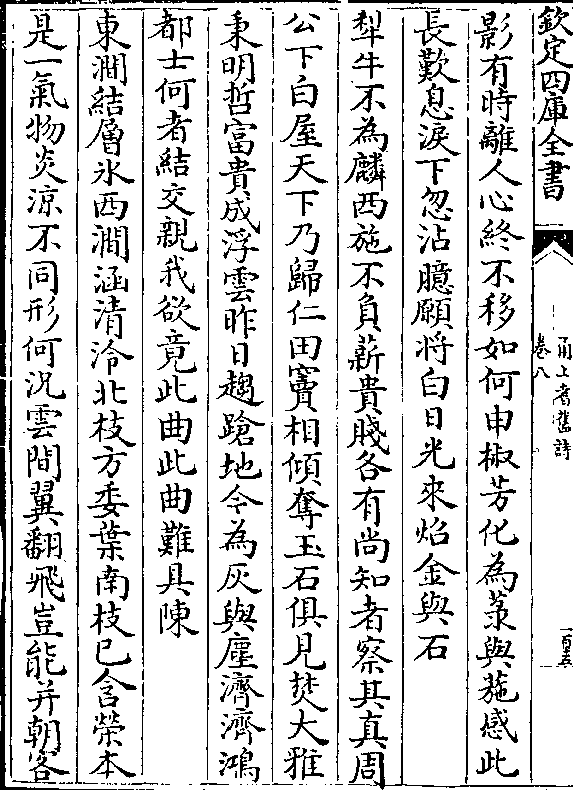 欽定四庫全書
甬上耆舊詩
卷八
影有時離人心終不移如何申椒芳化為菉與葹感此
長歎息淚下忽沾臆願將白日光來焰金與石
犁牛不為麟西施不負薪貴賤各有尚知者察其真周
公下白屋天下乃歸仁田竇相傾奪玉石俱見焚大雅
秉明哲富貴成浮雲昨日趨蹌地今為灰與塵濟濟鴻
都士何者結交親我欲竟此曲此曲難具陳
東澗結層氷西澗涵清泠北枝方委葉南枝已含榮本
是一氣物炎涼不同形何況雲間翼翻飛豈能并朝客